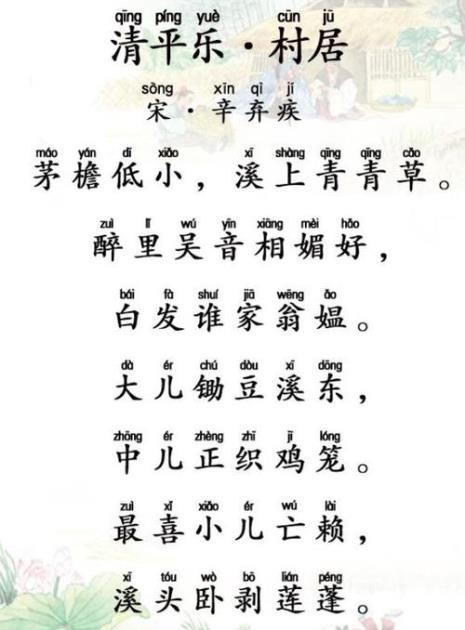 qīng píng yuè cūn jū
清平乐·村居
sòng xīn qì jí
宋·辛弃疾
máo yán dī xiǎo xī shàng qīng qīng cǎo
茅檐低小，溪上青青草。
zuì lǐ wú yīn xiāng mèi hǎo
醉里吴音相媚好，
bái fà shuí jiā wēng ǎo
白发谁家翁媪。
dà ér chú dòu xī dōng
大儿锄豆溪东，
zhōng ér zhèng zhī jī lóng
中儿正织鸡笼。
zuì xǐ xiǎo ér wú lài
最喜小儿亡赖，
xī tóu wò bō lián péng
溪头卧剥莲蓬。